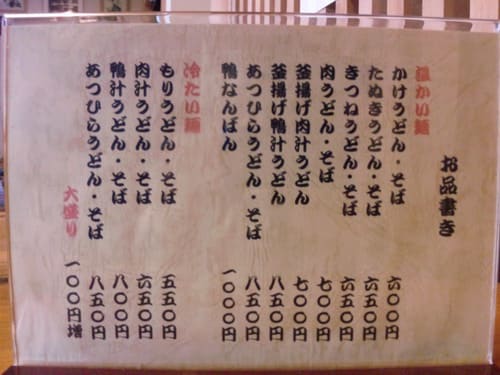 お品書き
温かい麺
かけうどん・そば 六〇〇円
たぬきうどん・そば 六五〇円
きつねうどん・そば 六五〇円
肉うどん・そば 七〇〇円
釜揚げ肉汁うどん 七〇〇円
釜揚げ鴨汁うどん 八五〇円
あつひらうどん・そば 八五〇円
鴨なんばん 一〇〇〇円
冷たい麺
もりうどん・そば 五五〇円
肉汁うどん・そば 六五〇円
鴨汁うどん・そば 八〇〇円
あつひらうどん・そば 八五〇円
大盛り 一〇〇円増